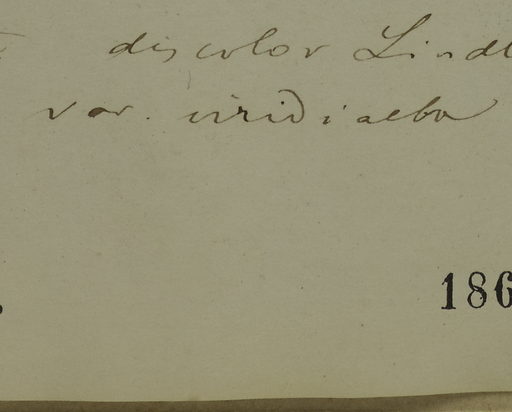 discolor Lindl
var. viridialba
186